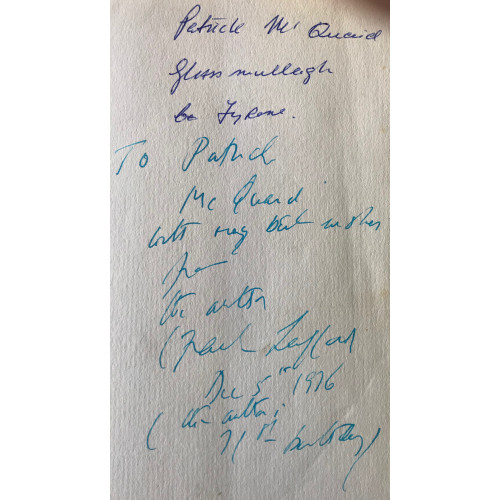 Patrick Mc Quaid
Glassmullagh
Co Tyrone.
To Patrick
Mc Quaid
with my best wishes
from
the author
(Frank Longford
Dec 5th 1976
(the author's
71st birthday)